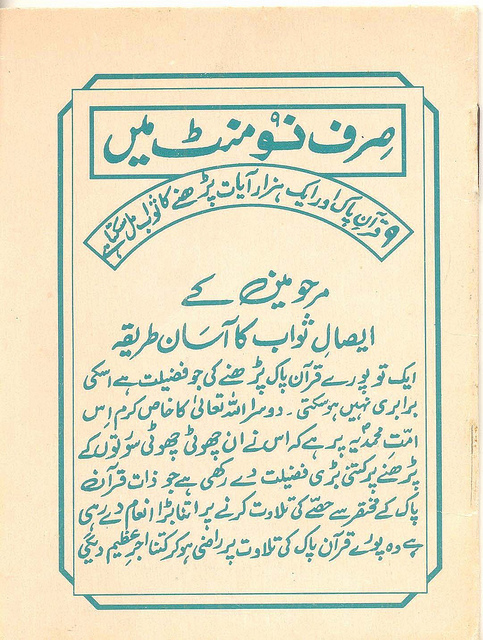 صرف نو ۹ منٹ میں
۹ قرآن پاک اور ایک ہزار آیات پڑھنے کا ثواب مل سکتا ہے
مرحومین کے
ایصالِ ثواب کا آسان طریقہ
ایک تو پورے قرآن پاک پڑھنے کی جو فضیلت ہے اسکی
برابری نہیں ہو سکتی ۔ دوسرا اللہ تعالیٰ کا خاص کرم اِس
امّتِ محمدیہ پر ہے کہ اس نے ان چھوٹی چھوٹی سورتوں کے
پڑھنے پر کتنی بڑی فضیلت دے رکھی ہے جو ذات قرآن
پاک کے مختصر سے حصّے کی تلاوت کرنے پر اتنا بڑا انعام دے رہی
ہے وہ پورے قرآن پاک کی تلاوت پر راضی ہو کر کتنا اجرِ عظیم دیگی